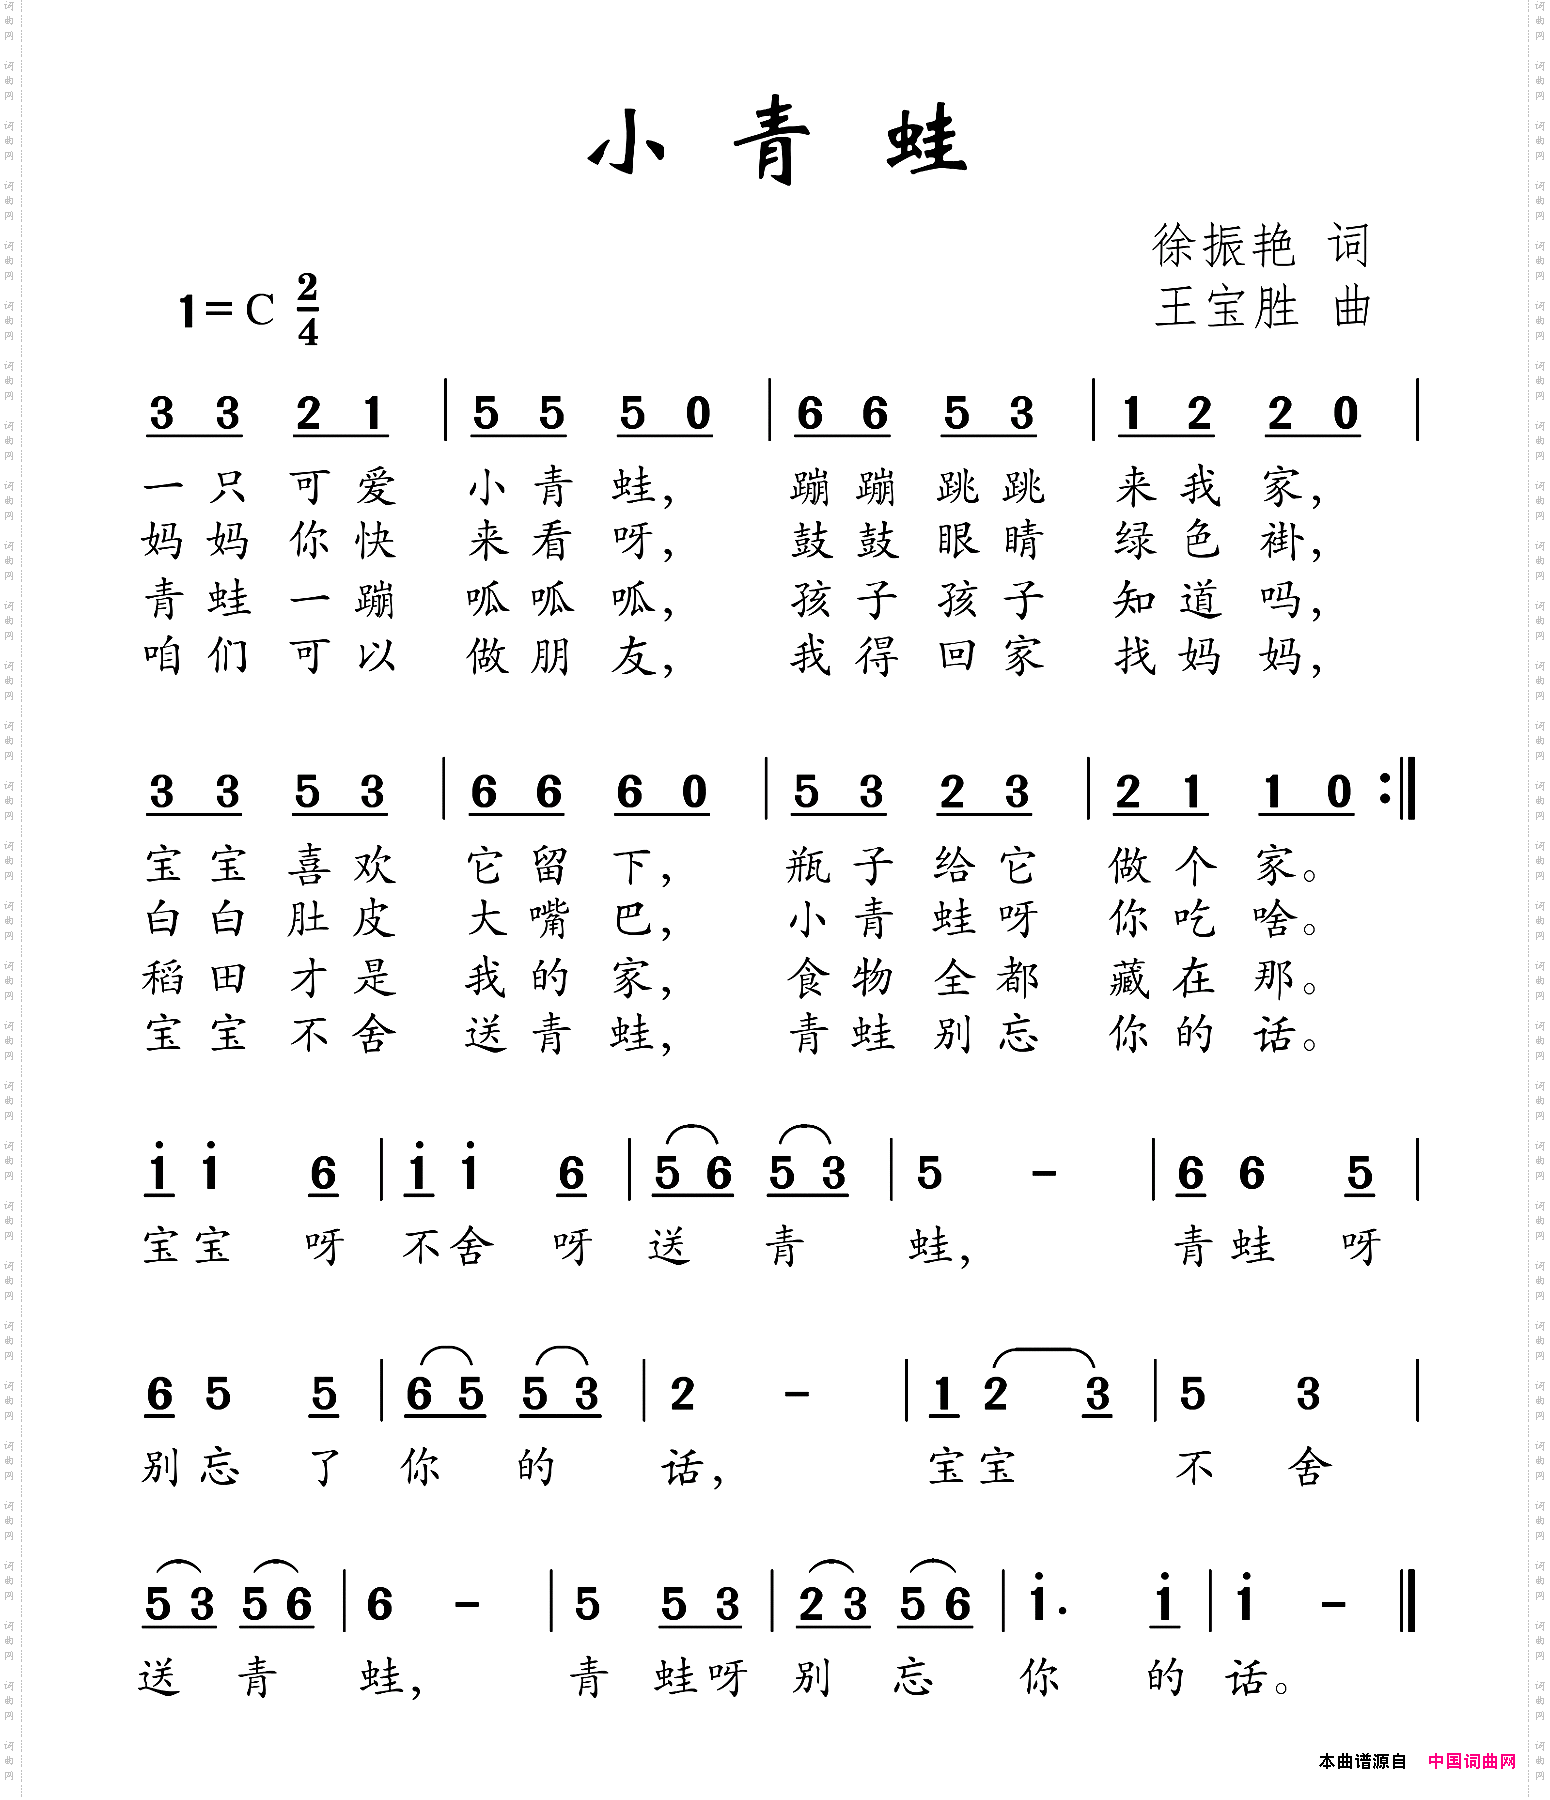 小青蛙
徐振艳 词
1=C 2/4
王宝胜 曲
3 3 2 1 | 5 5 5 0 | 6 6 5 3 | 1 2 2 0 |
一只可爱 小青蛙， 蹦蹦跳跳 来我家，
妈妈你快 来看呀， 鼓鼓眼睛 绿色褂，
青蛙一蹦 呱呱呱， 孩子孩子 知道吗，
咱们可以 做朋友， 我得回家 找妈妈，
3 3 5 3 | 6 6 6 0 | 5 3 2 3 | 2 1 1 0 :‖
宝宝喜欢 它留下， 瓶子给它 做个家。
白白肚皮 大嘴巴， 小青蛙呀 你吃啥。
稻田才是 我的家， 食物全都 藏在那。
宝宝不舍 送青蛙， 青蛙别忘 你的话。
i i 6 | i i 6 | 5 6 5 3 | 5 - | 6 6 5 |
宝宝 呀 不舍 呀 送 青 蛙， 青蛙 呀
6 5 5 | 6 5 5 3 | 2 - | 1 2 3 | 5 3 |
别忘 了 你 的 话， 宝宝 不 舍
5 3 5 6 | 6 - | 5 5 3 | 2 3 5 6 | i. i | i - ‖
送 青 蛙， 青 蛙呀 别 忘 你 的 话。
本曲谱源自 中国词曲网